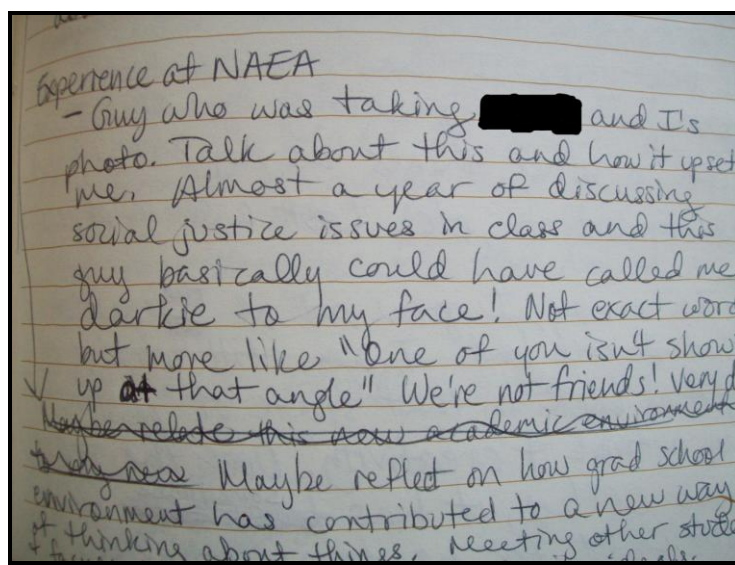 Experience at NAEA
- Guy who was taking and I's
photo. Talk about this and how it upset
me. Almost a year of discussing
social justice issues in class and this
guy basically could have called me
darkie to my face! Not exact word
but more like "One of you isn't show
up at that angle" We're not friends! Very d
Maybe relate this new academic environment
Maybe reflect on how grad school
environment has contributed to a new way
of thinking about things. Meeting other stude